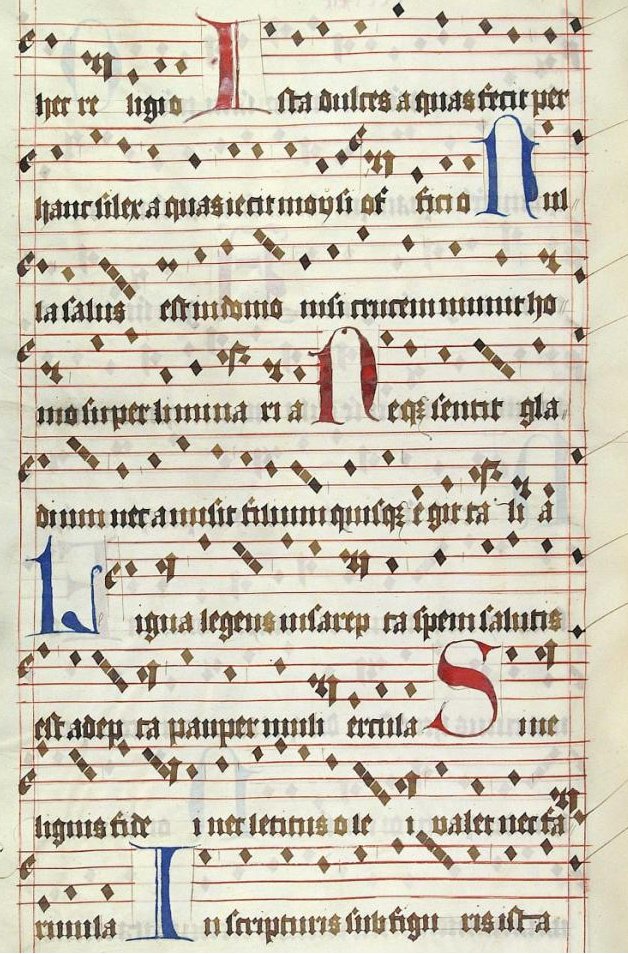 hec re ligi o Ista dulces aquas fecit per
hanc silex aquas iecit moysi of ficio Nul
la salus est in domo nisi crucem munit ho
mo super limina ri a Neqꝫ sentit gla
dium nec amisit filium quisqꝫ egit ta li a
Ligna legens in sarep ta spem salutis
est adep ta pauper muli ercula Sine
lignis fide i nec lecitus ole i valet nec fa
rinula In scripturis sub figu ris ista